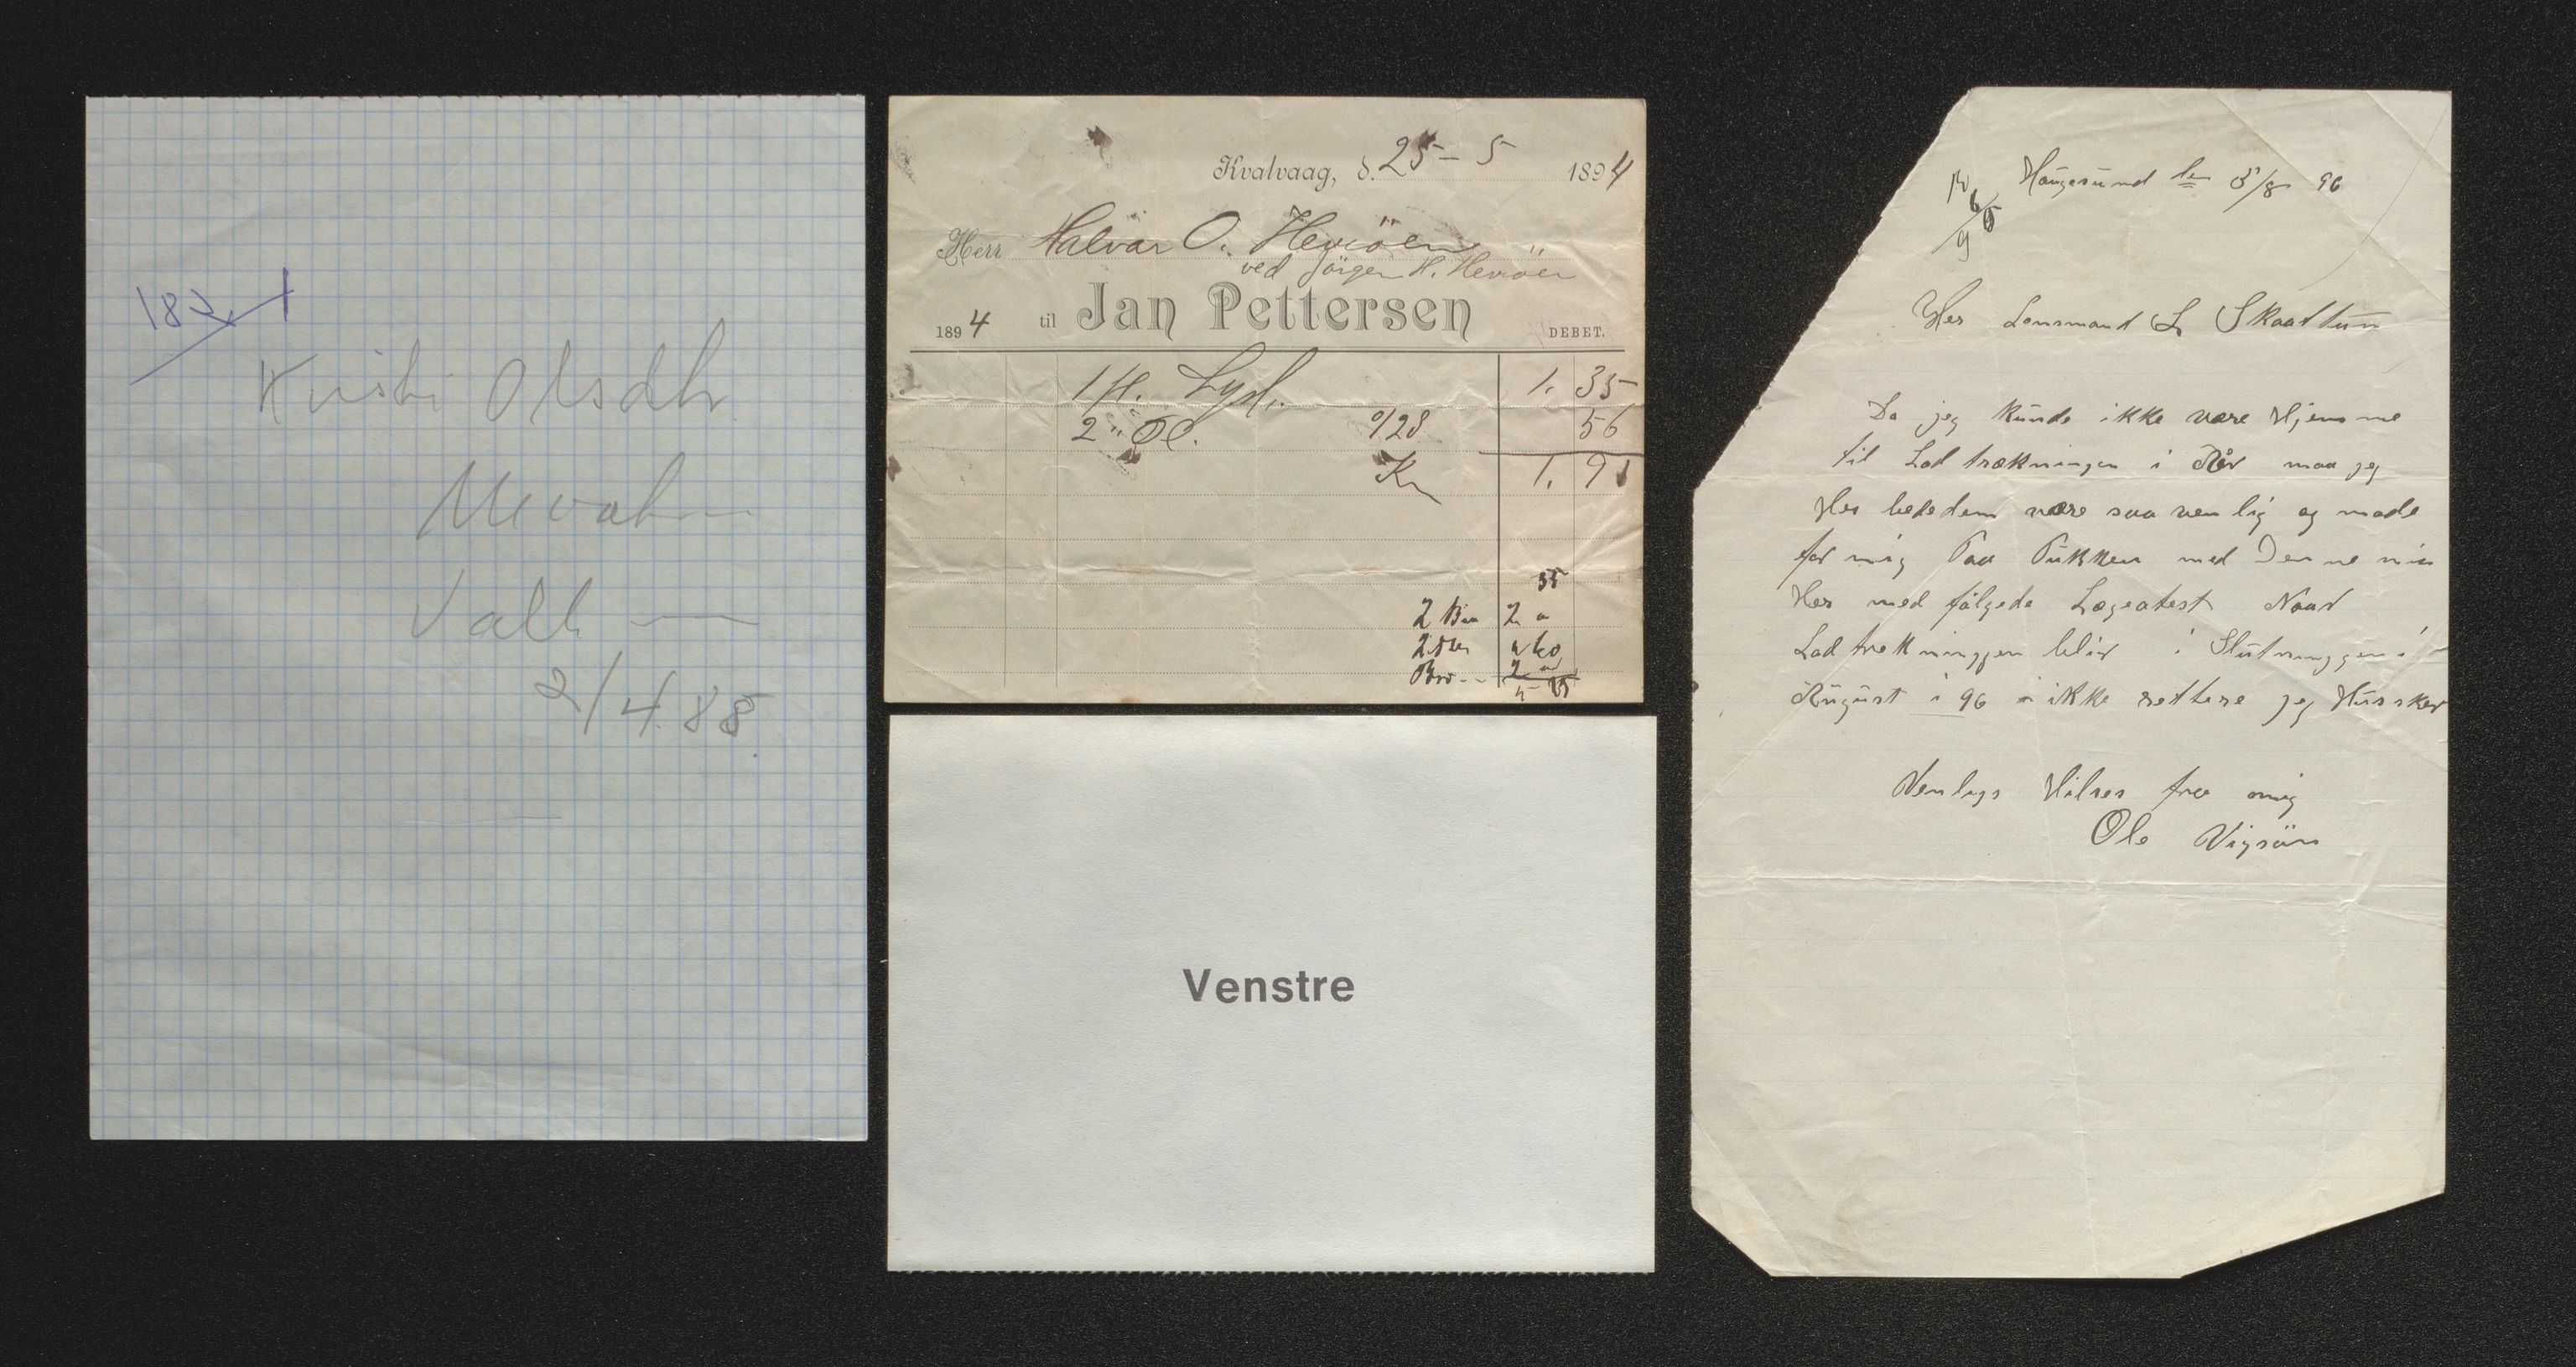 Kristi Olsdtr
Valb
2/4.88.
Kvalvaag, d. 25 - 5 1894
Herr Halvar O. Hevröen
ved Jörgen H. Hevröen
1894 til Jan Pettersen DEBET.
1 fl. 1. 35
2 " Öl. a/28 56
Kr 1. 91
35
2
2
Venstre
Haugesund den 5/8 96
Her Lensmand L Skaattun
Da jeg kunde ikke være Hjemme
til Lodtrækningen i Aar maa jeg
Her bede dem være saa venlig og møde
for mig Paa Pukken med Denne min
Her med fölgede Lægeatest Naar
Lodtrækninggen blir i Slutninggen i
August i 96 ikke rettere jeg Hussker
Venligs Hilses fra mig
Ole Vigsön